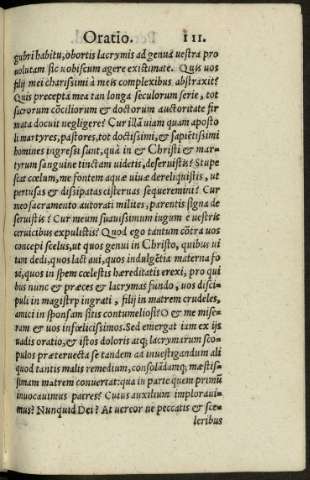 Oratio. III.
gubri habitu, obortis lacrymis ad genua uestra pro
uolutam sic uobiscum agere existimate. Quis uos
filij mei charissimi à meis complexibus abstraxit?
Quis præcepta mea tan longa seculorum serie, tot
sacrorum cōciliorum & doctorum auctoritate fir
mata docuit negligere? Cur illā uiam quam aposto
li martyres, pastores, tot doctißimi, & sapiētißimi
homines ingreßi sunt, quā in & Christi & mar-
tyrum sanguine tinctam uidetis, deseruistis? Stupe
scat cœlum, me fontem aquæ uiuæ dereliquistis, ut
pertusas & dißipatas cisternas sequeremini? Cur
meo sacramento autorati milites, parentis signa de
seruistis? Cur meum suauißimum iugum e uestris
ceruicibus expulistis? Quod ego tantum cōtra uos
concepi scelus, ut quos genui in Christo, quibus ui
tam dedi, quos lact'aui, quos indulgētia materna fo
ui, quos in spem cœlestis hæreditatis erexi, pro qui
bus nunc & præces & lacrymas fundo, uos disci-
puli in magistrā ingrati, filij in matrem crudeles,
amici in sponsam sitis contumeliosi? O & me mise-
ram & uos infœlicißimos. Sed emergat iam ex ijs
uadis oratio, & istos doloris atq; lacrymarum sco-
pulos præteruecta se tandem ad inuestigandum ali
quod tantis malis remedium, consolādamq; mæstis-
simam matrem conuertat: qua in parte quem primū
inuocauimus patres? Cuius auxilium implorauí-
mus? Nunquid Dei? At uereor ne peccatis & sce-
leribus